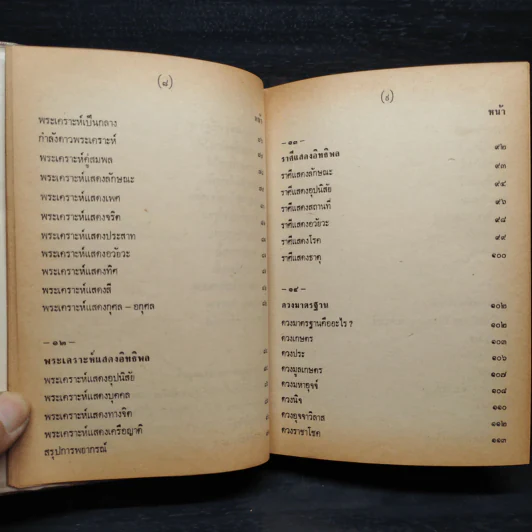 (๘)
หน้า
พระเคราะห์เป็นกลาง
กำลังดาวพระเคราะห์
พระเคราะห์คู่สมพล
พระเคราะห์แสดงลักษณะ
พระเคราะห์แสดงเพศ
พระเคราะห์แสดงจริต
พระเคราะห์แสดงประสาท
พระเคราะห์แสดงอวัยวะ
พระเคราะห์แสดงทิศ
พระเคราะห์แสดงสี
พระเคราะห์แสดงกุศล – อกุศล
– ๑๒ –
พระเคราะห์แสดงอิทธิพล
พระเคราะห์แสดงอุปนิสัย
พระเคราะห์แสดงบุคคล
พระเคราะห์แสดงทางจิต
พระเคราะห์แสดงเครือญาติ
สรุปการพยากรณ์
(๙)
หน้า
– ๑๓ –
ราศีแสดงอิทธิพล ๙๒
ราศีแสดงลักษณะ ๙๓
ราศีแสดงอุปนิสัย ๙๔
ราศีแสดงสถานที่ ๙๖
ราศีแสดงอวัยวะ ๙๘
ราศีแสดงโรค ๙๙
ราศีแสดงธาตุ ๑๐๐
– ๑๔ –
ดวงมาตรฐาน ๑๐๒
ดวงมาตรฐานคืออะไร ? ๑๐๒
ดวงเกษตร ๑๐๓
ดวงประ ๑๐๖
ดวงมูลเกษตร ๑๐๗
ดวงมหาอุจจ์ ๑๐๘
ดวงนิจ ๑๑๐
ดวงอุจจาวิลาส ๑๑๒
ดวงราชาโชค ๑๑๓